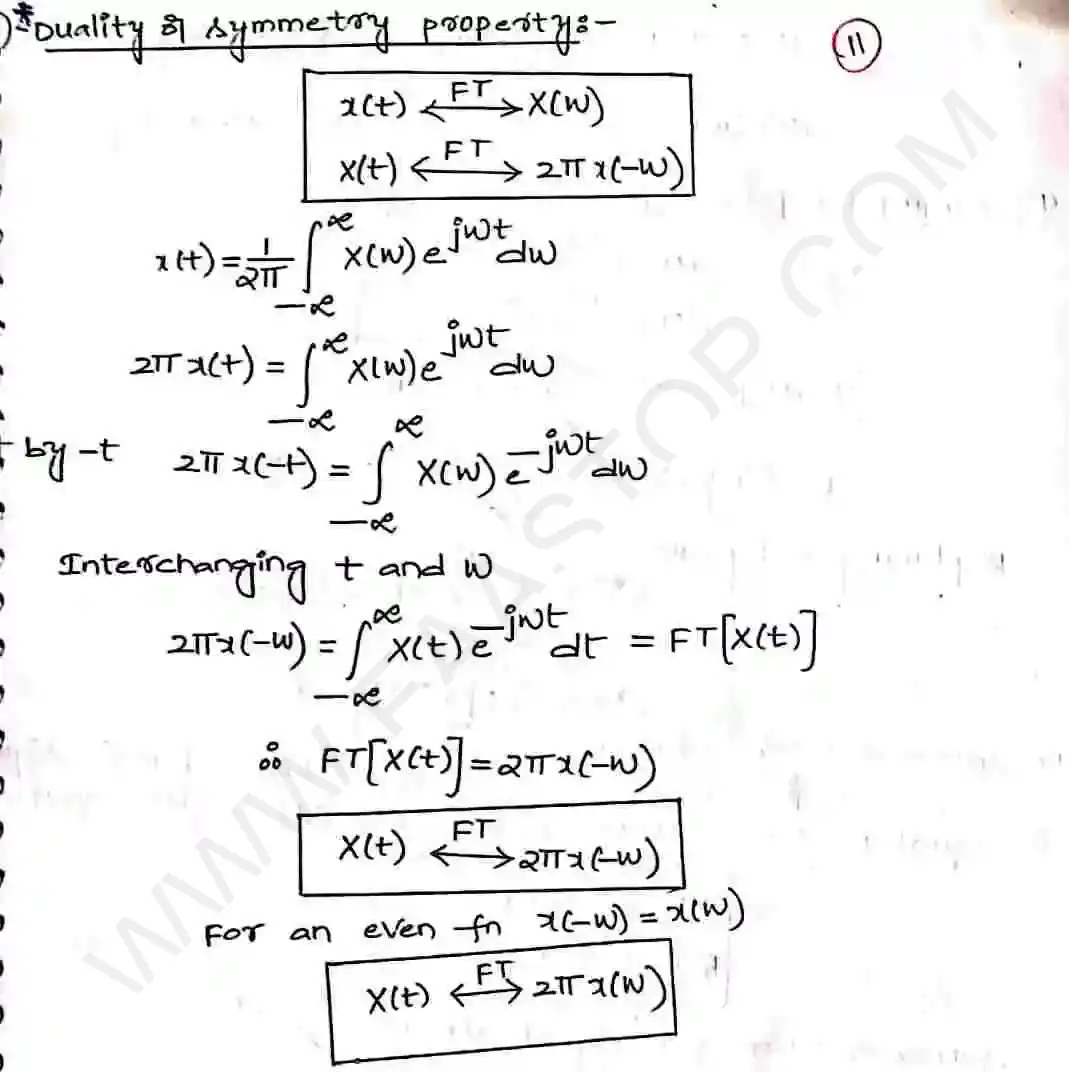 )* Duality or symmetry property:-
11
x(t) <--FT--> X(w)
X(t) <--FT--> 2π x(-w)
x(t) = 1/2π ∫_{-∞}^{∞} X(w) e^{jwt} dw
2π x(t) = ∫_{-∞}^{∞} X(w) e^{jwt} dw
t by -t 2π x(-t) = ∫_{-∞}^{∞} X(w) e^{-jwt} dw
Interchanging t and w
2π x(-w) = ∫_{-∞}^{∞} X(t) e^{-jwt} dt = FT[X(t)]
∴ FT[X(t)] = 2π x(-w)
X(t) <--FT--> 2π x(-w)
For an even fn x(-w) = x(w)
X(t) <--FT--> 2π x(w)
WWW.FAASTOP.COM